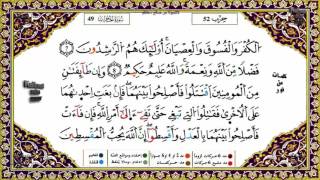 49
حزب 52
الْكُفْرَ وَالْفُسُوقَ وَالْعِصْيَانَ أُولَٰئِكَ هُمُ الرَّاشِدُونَ ٧
فَضْلًا مِّنَ اللَّهِ وَنِعْمَةً وَاللَّهُ عَلِيمٌ حَكِيمٌ ٨ وَإِن طَائِفَتَانِ
مِنَ الْمُؤْمِنِينَ اقْتَتَلُوا فَأَصْلِحُوا بَيْنَهُمَا فَإِن بَغَتْ إِحْدَاهُمَا
عَلَى الْأُخْرَىٰ فَقَاتِلُوا الَّتِي تَبْغِي حَتَّىٰ تَفِيءَ إِلَىٰ أَمْرِ اللَّهِ فَإِن فَاءَتْ
فَأَصْلِحُوا بَيْنَهُمَا بِالْعَدْلِ وَأَقْسِطُوا إِنَّ اللَّهَ يُحِبُّ الْمُقْسِطِينَ
من
نور